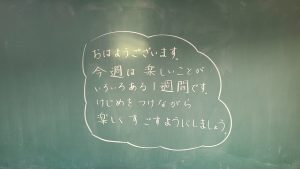 おはようございます。
今週は楽しいことが
いろいろある1週間です。
けじめをつけながら
楽しくすごすようにしましょう。